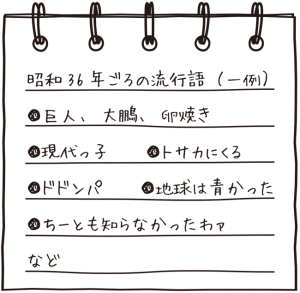 昭和36年ごろの流行語（一例）
●巨人、大鵬、卵焼き
●現代っ子　●トサカにくる
●ドドンパ　●地球は青かった
●ちーとも知らなかったわァ
など